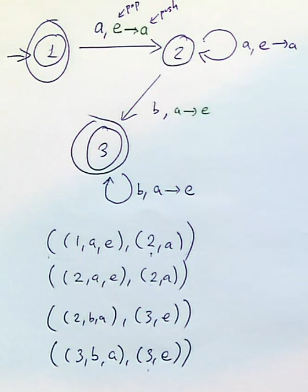 pop
a, e→a push
1
2
a, e→a
b, a→e
3
b, a→e
((1,a,e), (2,a))
((2,a,e), (2,a))
((2,b,a), (3,e))
((3,b,a), (3,e))